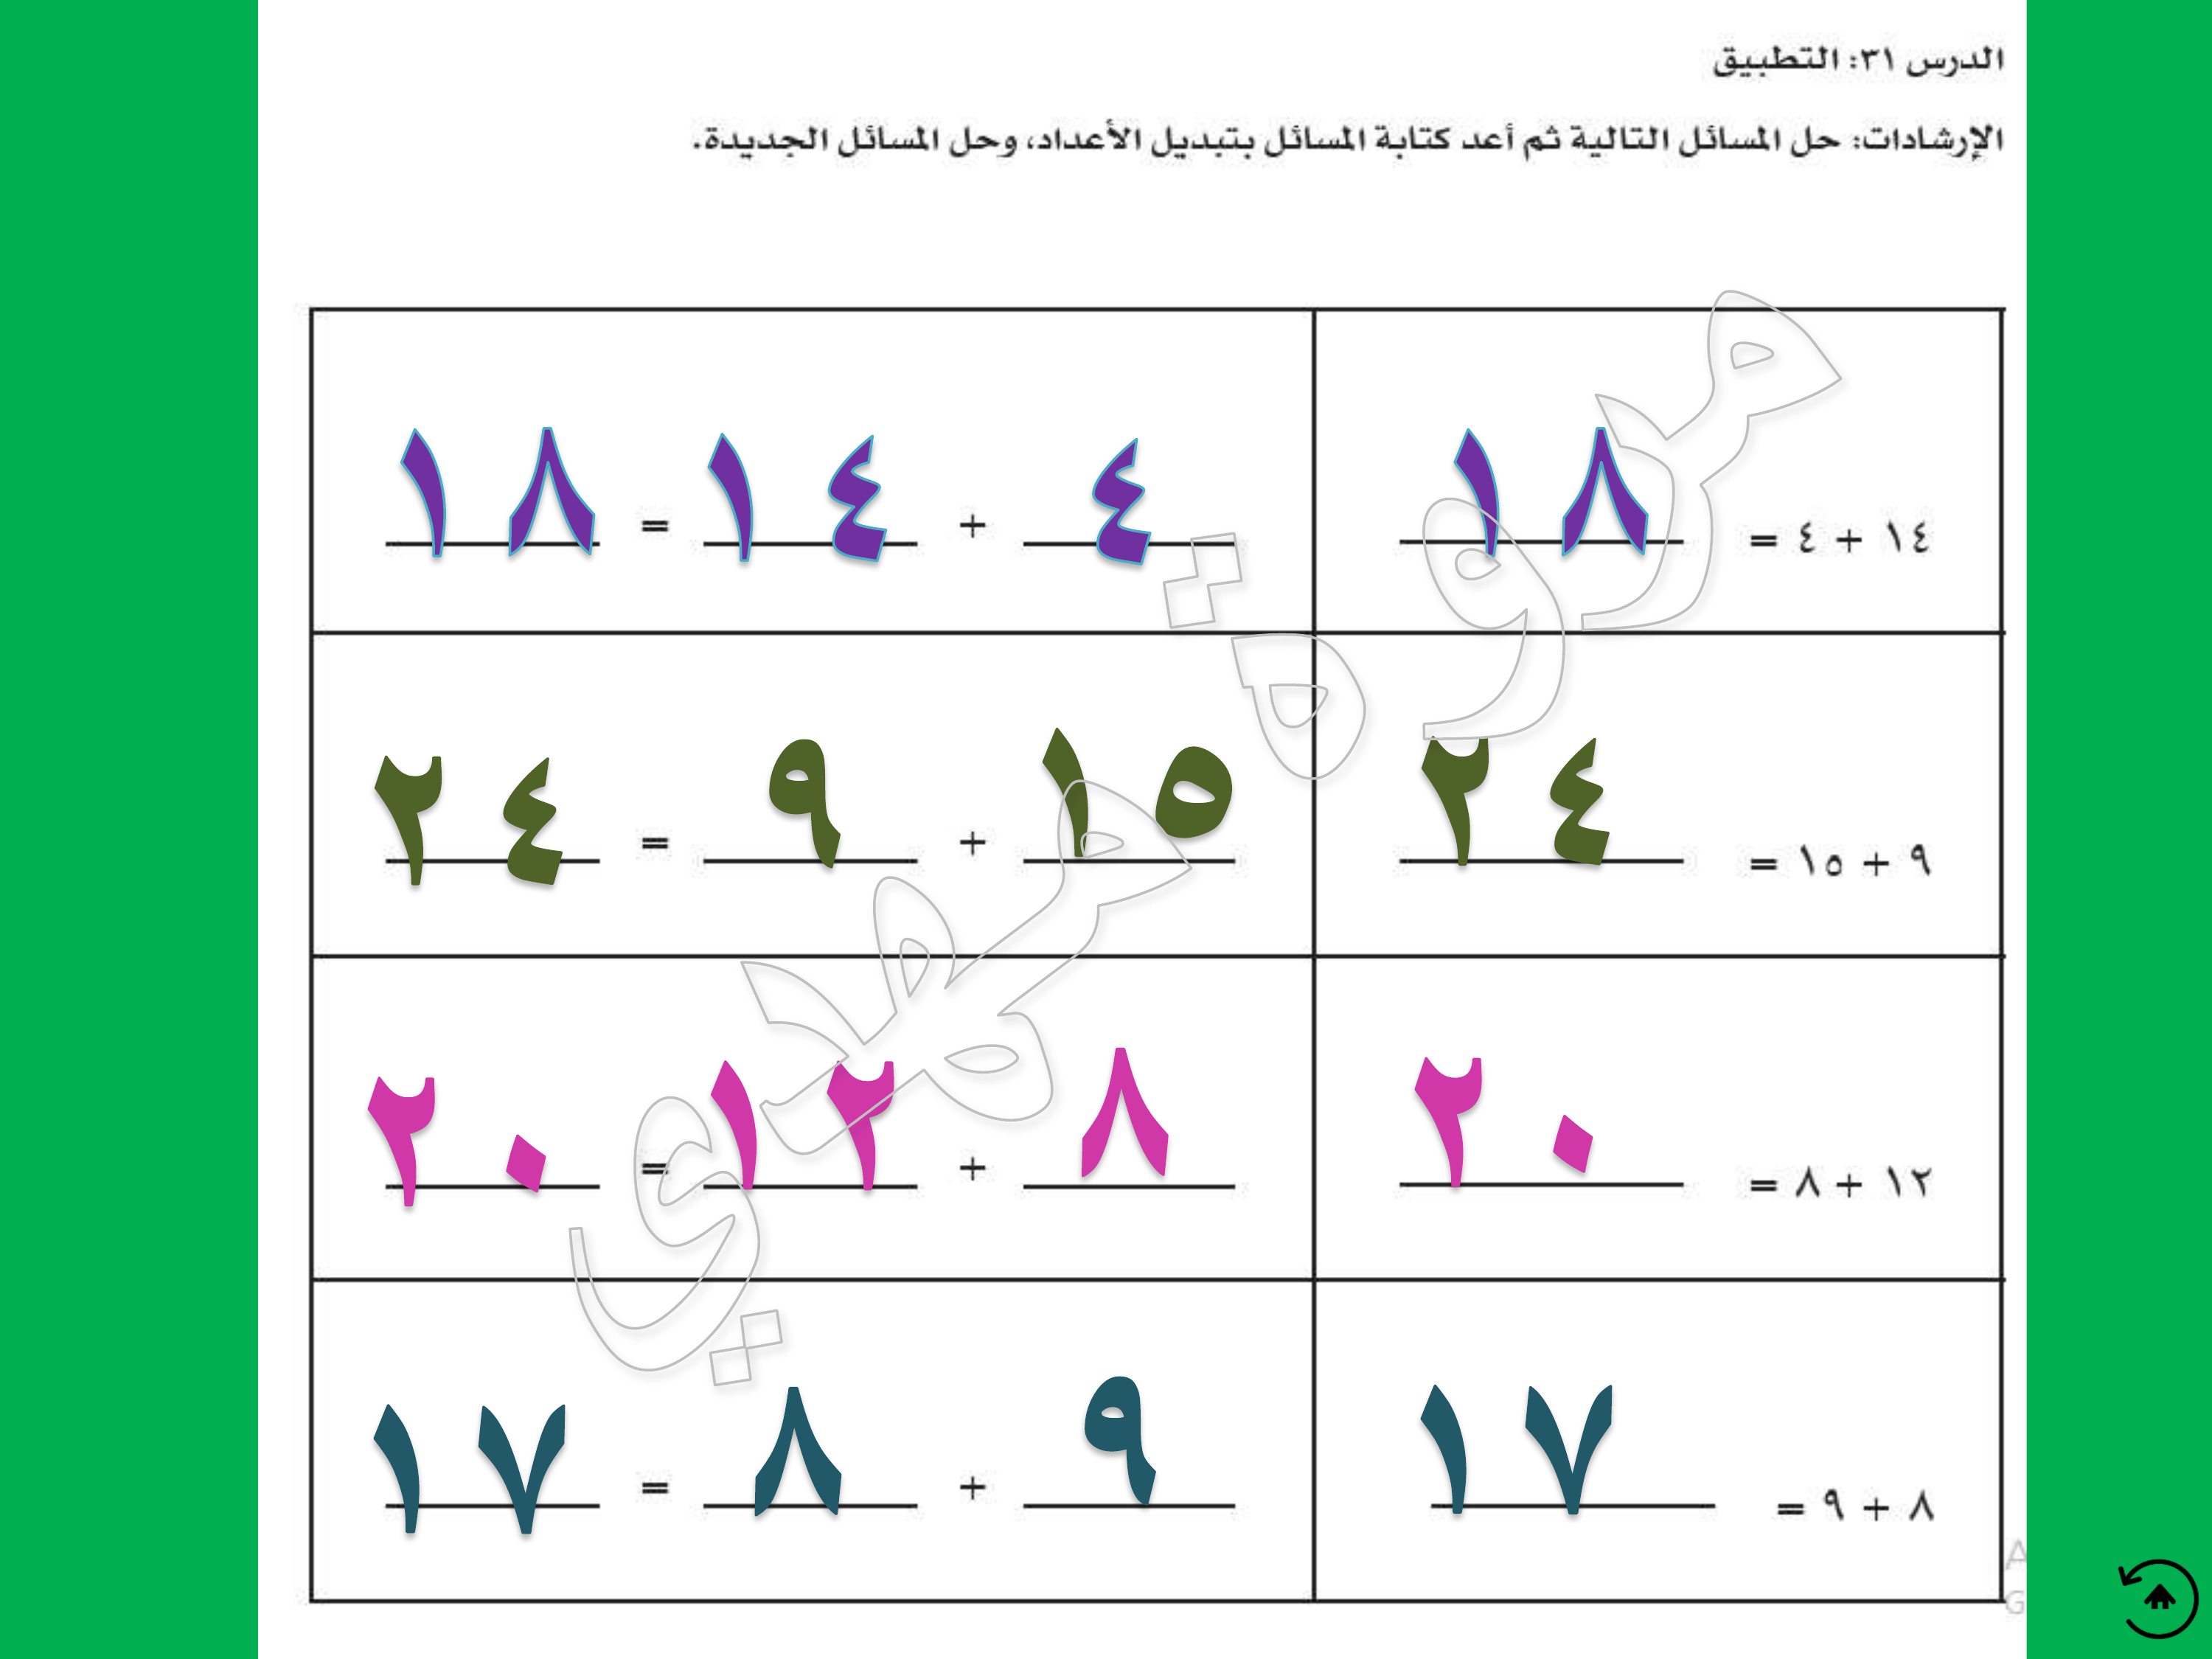 الدرس ٣١: التطبيق
الإرشادات: حل المسائل التالية ثم أعد كتابة المسائل بتبديل الأعداد، وحل المسائل الجديدة.
١٤ + ٤ = ١٨
٤ + ١٤ = ١٨
٩ + ١٥ = ٢٤
١٥ + ٩ = ٢٤
١٢ + ٨ = ٢٠
٨ + ١٢ = ٢٠
٨ + ٩ = ١٧
٩ + ٨ = ١٧